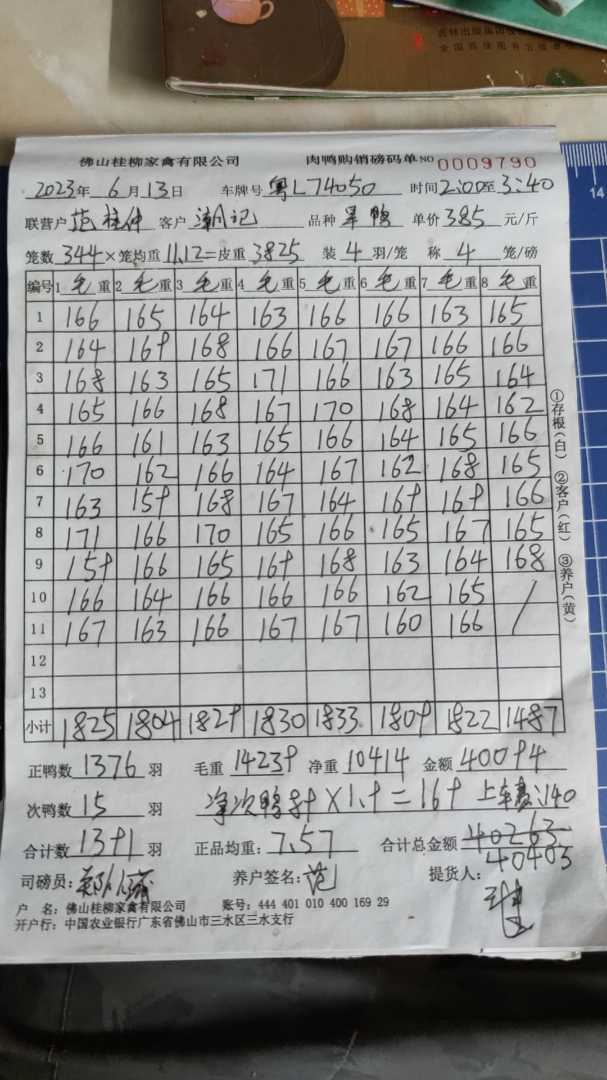 佛山桂柳家禽有限公司 肉鸭购销磅码单 NO 0009790
2023年 6月13日 车牌号 粤L74050 时间 2:00至3:40
联营户 范桂仲 客户 潮记 品种 旱鸭 单价 3.85 元/斤
笼数 344×笼均重 11.12=皮重 3825 装 4 羽/笼 称 4 笼/磅
编号 1 毛重 2 毛重 3 毛重 4 毛重 5 毛重 6 毛重 7 毛重 8 毛重
1 166 165 164 163 166 166 163 165
2 164 169 168 166 167 167 166 166
3 168 163 165 171 166 163 165 164
4 165 166 168 167 170 168 164 162
5 166 161 163 165 166 164 165 166
6 170 162 166 164 167 162 168 165
7 163 159 168 167 164 169 169 166
8 171 166 170 165 166 165 167 165
9 159 166 165 169 168 163 164 168
10 166 164 166 166 166 162 165 /
11 167 163 166 167 167 160 166
12
13
小计 1825 1804 1829 1830 1833 1809 1822 1487
①存根(白) ②客户(红) ③养户(黄)
正鸭数 1376 羽 毛重 14239 净重 10414 金额 40094
次鸭数 15 羽 净次鸭 89×1.9=169 上车费:140
合计数 1391 羽 正品均重: 7.57 合计总金额 40263
40403
司磅员: 养户签名: 范 提货人:
户 名: 佛山桂柳家禽有限公司 账号: 444 401 010 400 169 29
开户行: 中国农业银行广东省佛山市三水区三水支行
14